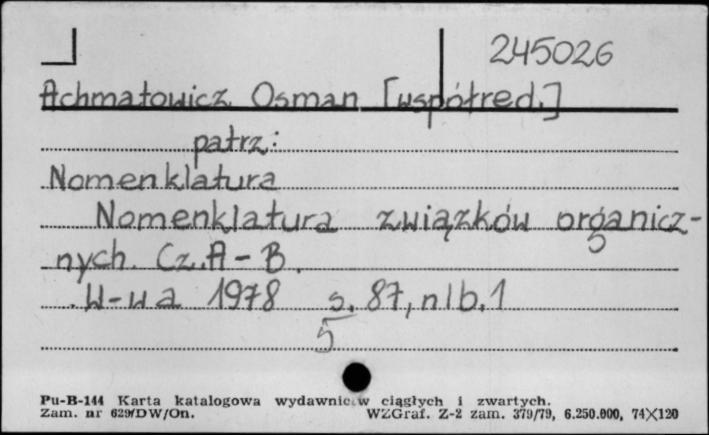 245026
Achmatowicz Osman [współred.]
patrz:
Nomenklatura
Nomenklatura związków organicz-
nych. Cz. A - B.
W-wa 1978 s. 87, nlb. 1
5
Pu-B-144 Karta katalogowa wydawnictw ciągłych i zwartych.
Zam. nr 629/DW/On. WZGraf. Z-2 zam. 379/79, 6.250.000, 74×120